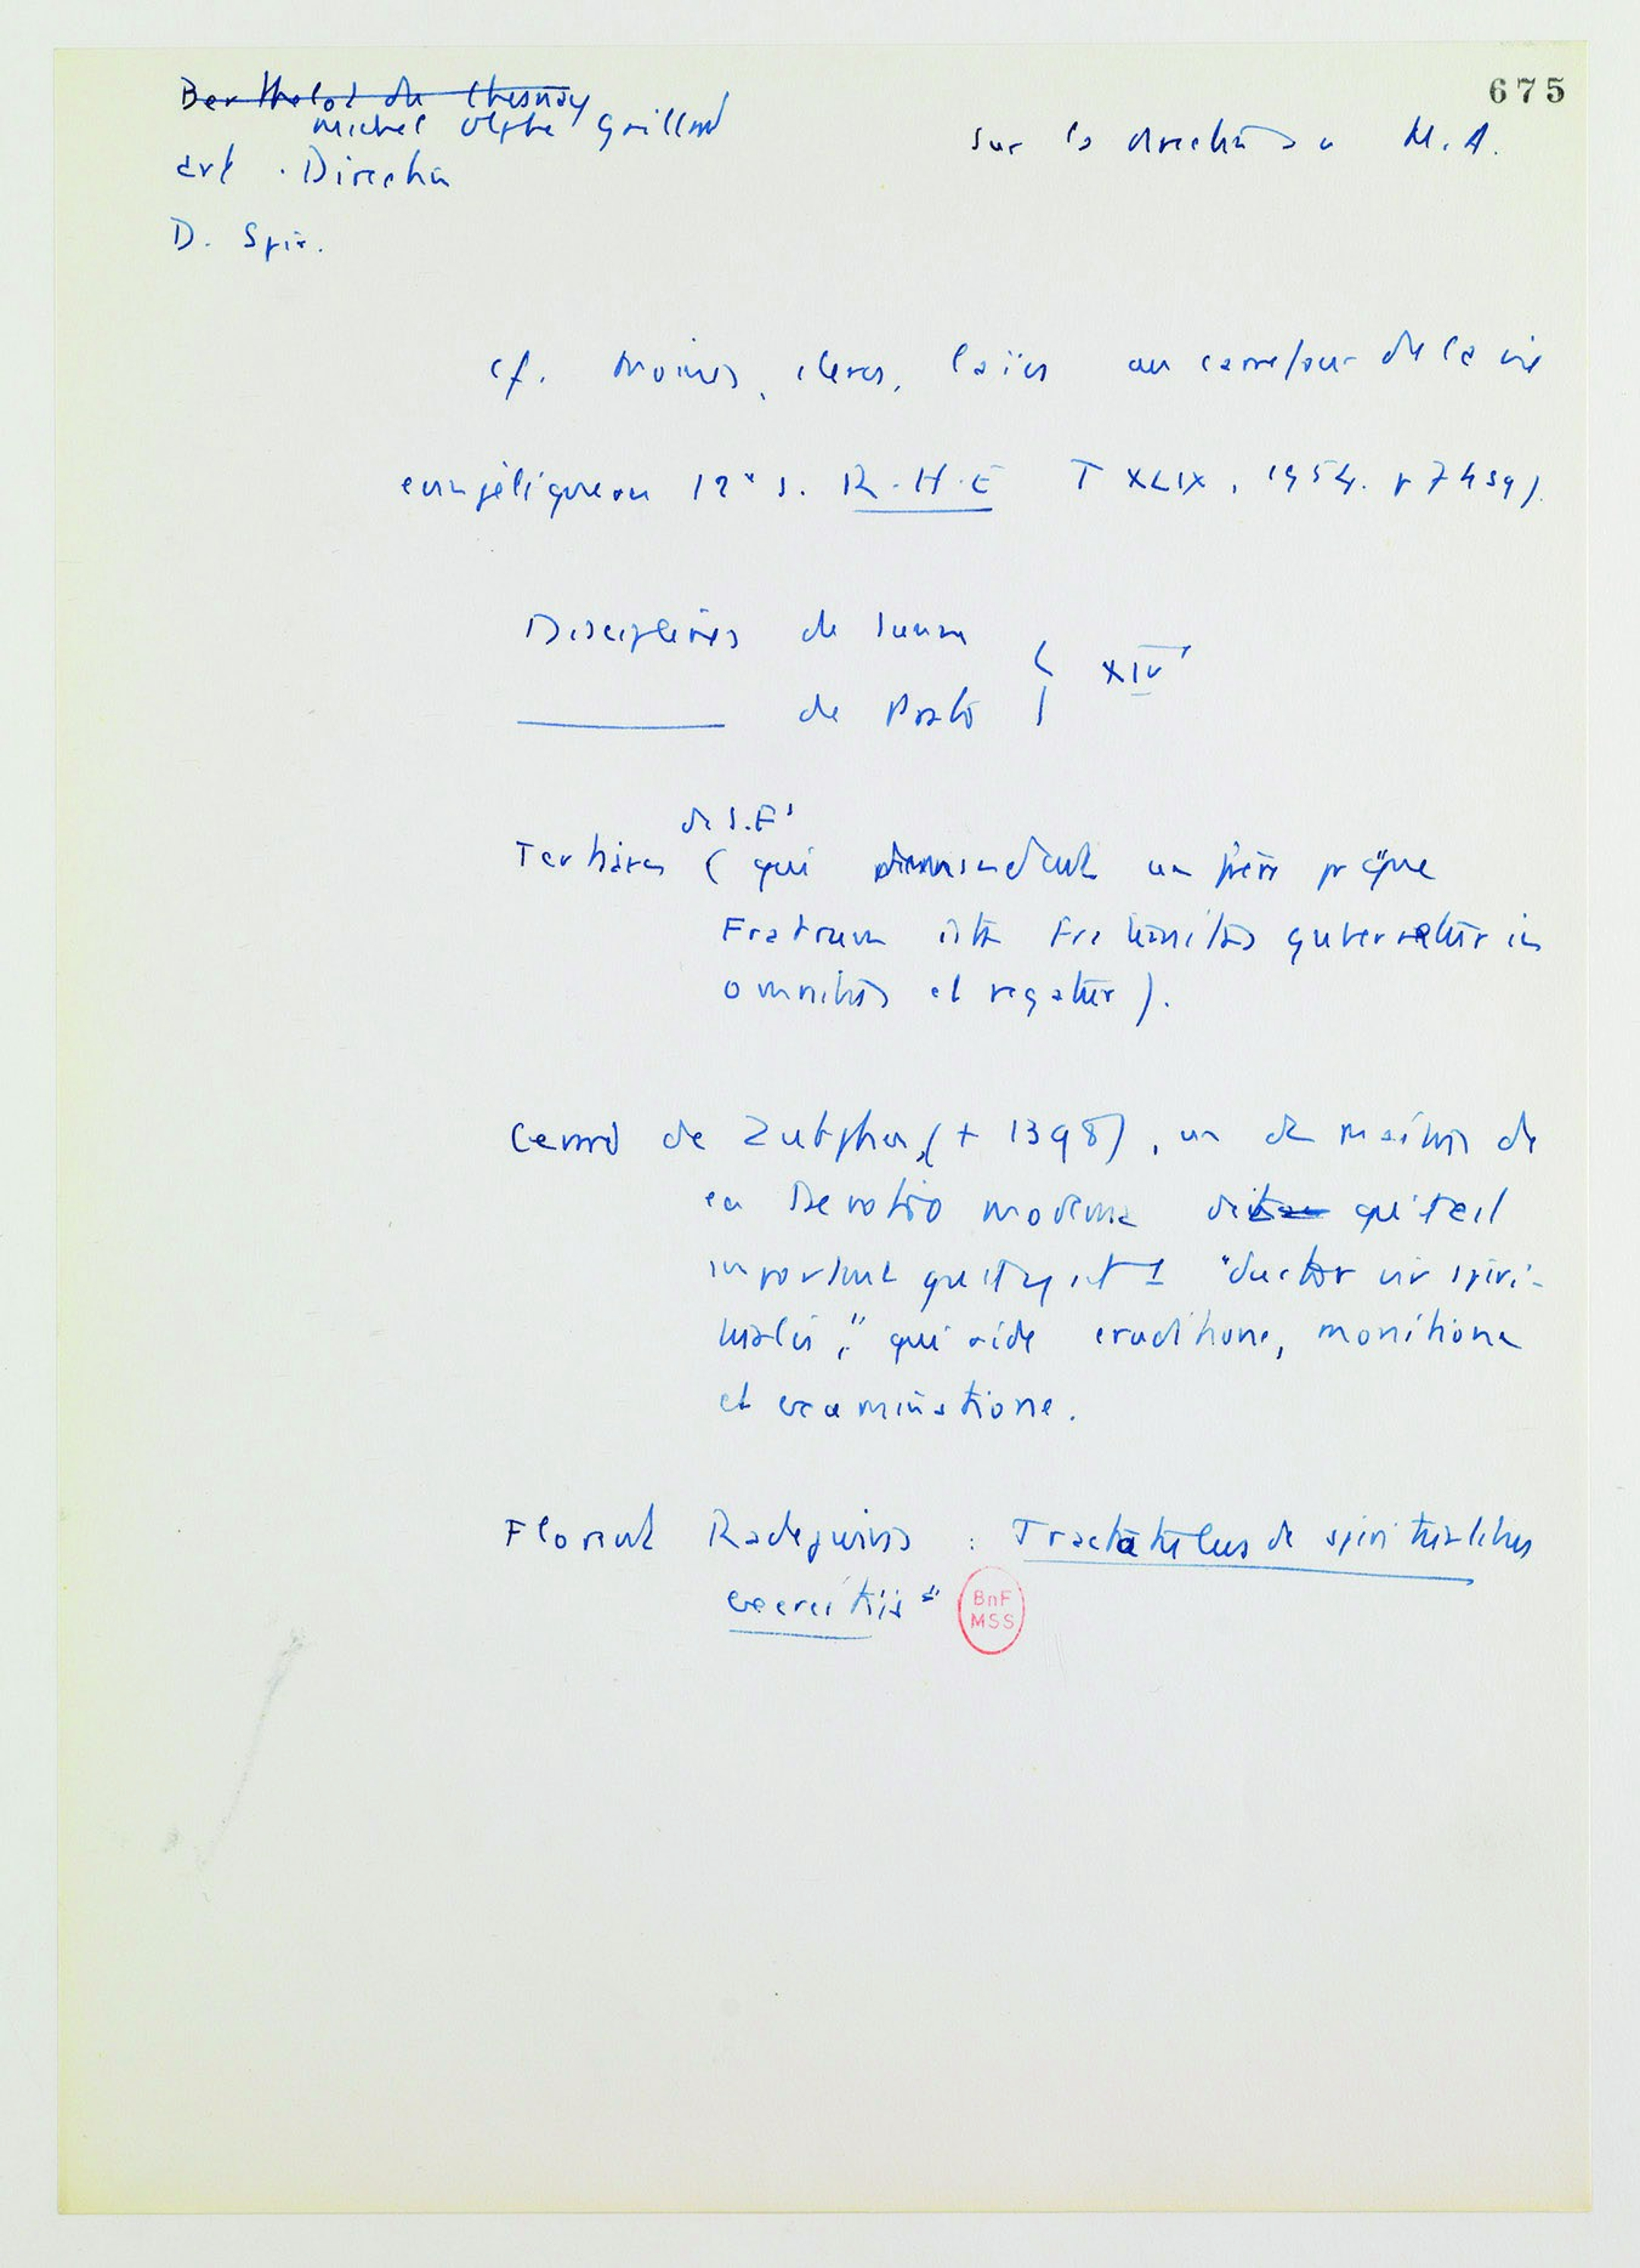 675
Berthelot du Chesnay
Michel Olphe Gaillard
sur la direction au M. A.
art. Direction
D. Spir.
cf. Moines, clercs, laïcs au carrefour de la vie
evangélique au 12e s. R.H.E T XLIX, 1954. p
Disciplines de
de Prato XIVe
de S. F
Tertiaires ( qui demandent un frère pr que
Fratrum ista fraternitas gubernetur in
omnibus et regatur ).
Gerard de Zutphen, († 1398), un des maîtres de
la Devotio moderna dit qu'il est
important qu'il y ait 1 "ductor vir spiri-
tualis," qui aide eruditione, monitione
et examinatione.
Florent Radewijns : Tractatulus de spiritualibus
exercitiis"
BnF
MSS